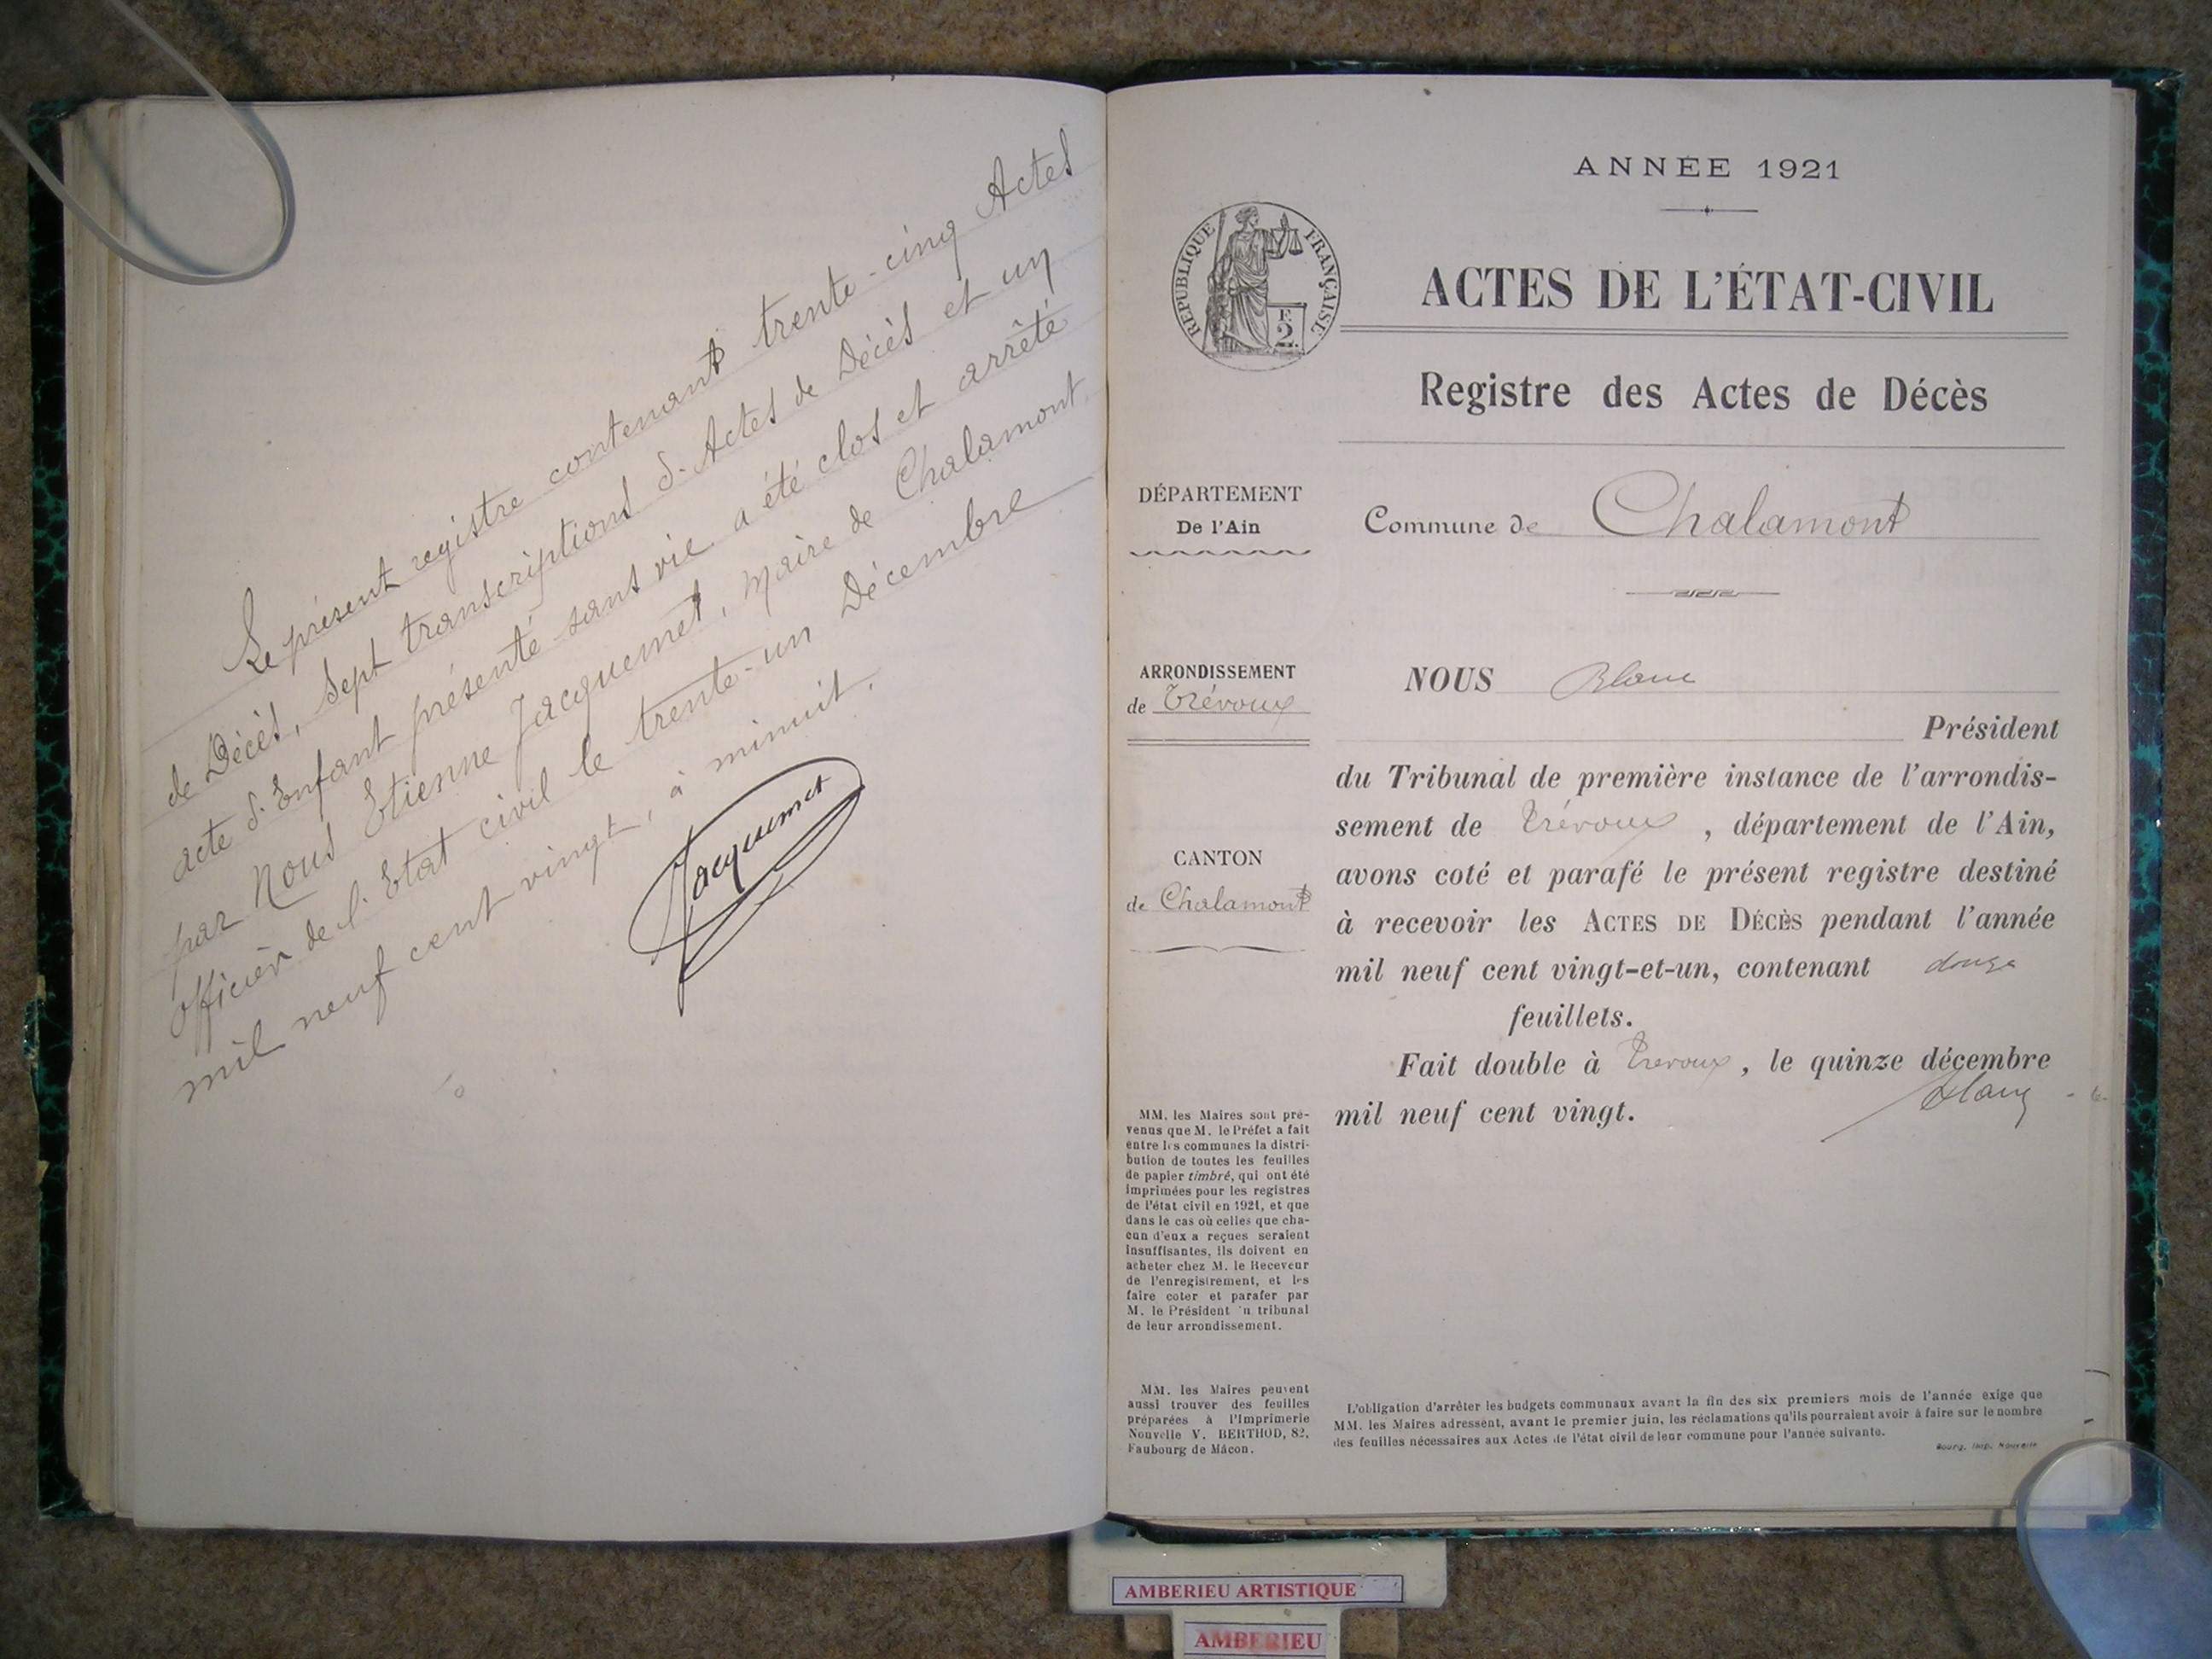 Le présent registre contenant trente-cinq Actes
de Décès, Sept transcriptions d'Actes de Décès et un
acte d'Enfant présenté sans vie a été clos et arrêté
par Nous Etienne Jacquemet, Maire de Chalamont,
officier de l'Etat civil le trente-un Décembre
mil neuf cent vingt, à minuit.
Jacquemet
ANNÉE 1921
RÉPUBLIQUE FRANÇAISE
F.
2.
ACTES DE L'ÉTAT-CIVIL
Registre des Actes de Décès
DÉPARTEMENT
De l'Ain
Commune de Chalamont
ARRONDISSEMENT
de Trévoux
CANTON
de Chalamont
NOUS Blanc
Président
du Tribunal de première instance de l'arrondis-
sement de Trévoux, département de l'Ain,
avons coté et parafé le présent registre destiné
à recevoir les ACTES DE DÉCÈS pendant l'année
mil neuf cent vingt-et-un, contenant douze
feuillets.
Fait double à Trévoux, le quinze décembre
mil neuf cent vingt.
Blanc
MM. les Maires sont pré-
venus que M. le Préfet a fait
entre les communes la distri-
bution de toutes les feuilles
de papier timbré, qui ont été
imprimées pour les registres
de l'état civil en 1921, et que
dans le cas où celles que cha-
cun d'eux a reçues seraient
insuffisantes, ils doivent en
acheter chez M. le Receveur
de l'enregistrement, et les
faire coter et parafer par
M. le Président du tribunal
de leur arrondissement.
MM. les Maires peuvent
aussi trouver des feuilles
préparées à l'Imprimerie
Nouvelle V. BERTHOD, 82,
Faubourg de Mâcon.
L'obligation d'arrêter les budgets communaux avant la fin des six premiers mois de l'année exige que
MM. les Maires adressent, avant le premier juin, les réclamations qu'ils pourraient avoir à faire sur le nombre
des feuilles nécessaires aux Actes de l'état civil de leur commune pour l'année suivante.
Bourg, Imp. Nouvelle
AMBERIEU ARTISTIQUE
AMBERIEU